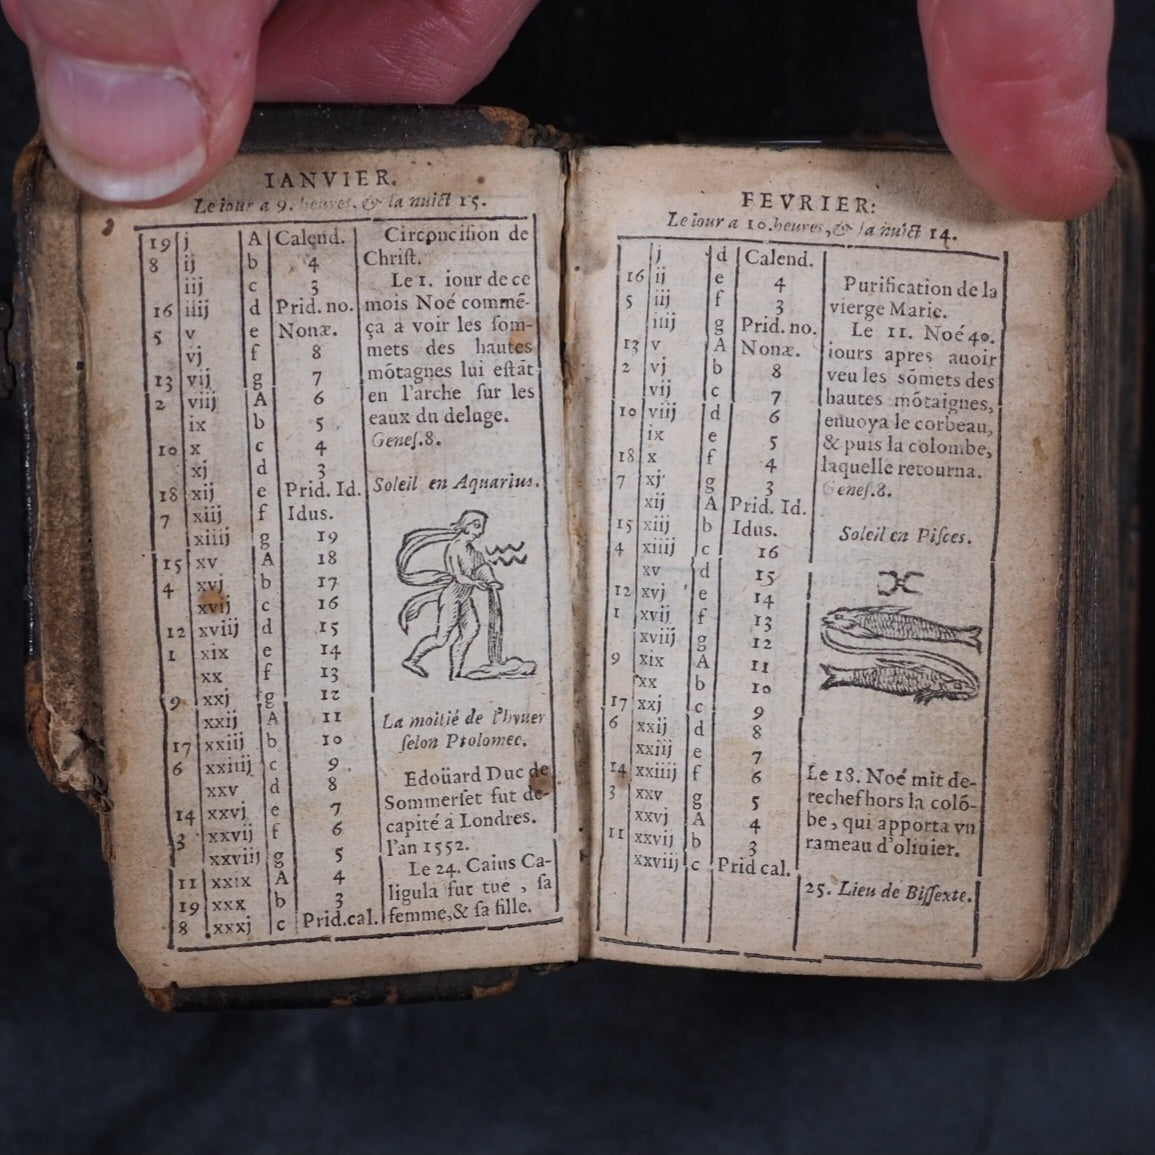 IANVIER.
Le iour a 9. heures, & la nuict 15.
19 j A Calend.
8 ij b 4
iij c 3
16 iiij d Prid. no.
5 v e Nonæ.
vj f 8
13 vij g 7
2 viij A 6
ix b 5
10 x c 4
xj d 3
18 xij e Prid. Id.
7 xiij f Idus.
xiiij g 19
15 xv A 18
4 xvj b 17
xvij c 16
12 xviij d 15
1 xix e 14
xx f 13
9 xxj g 12
xxij A 11
17 xxiij b 10
6 xxiiij c 9
xxv d 8
14 xxvj e 7
3 xxvij f 6
xxviij g 5
11 xxix A 4
19 xxx b 3
8 xxxj c Prid.cal.
Circoncision de
Christ.
Le 1. iour de ce
mois Noé commē-
ça à voir les som-
mets des hautes
mōtagnes lui estāt
en l'arche sur les
eaux du deluge.
Genes.8.
Soleil en Aquarius.
La moitié de l'hyuer
selon Ptolomee.
Edoüard Duc de
Sommerset fut de-
capité à Londres.
l'an 1552.
Le 24. Caius Ca-
ligula fut tué, sa
femme, & sa fille.
FEVRIER:
Le iour a 10. heures, & la nuict 14.
j d Calend.
16 ij e 4
5 iij f 3
iiij g Prid. no.
13 v A Nonæ.
2 vj b 8
vij c 7
10 viij d 6
ix e 5
18 x f 4
7 xj g 3
xij A Prid. Id.
15 xiij b Idus.
4 xiiij c 16
xv d 15
12 xvj e 14
1 xvij f 13
xviij g 12
9 xix A 11
xx b 10
17 xxj c 9
6 xxij d 8
xxiij e 7
14 xxiiij f 6
3 xxv g 5
xxvj A 4
11 xxvij b 3
xxviij c Prid cal.
Purification de la
vierge Marie.
Le 11. Noé 40.
iours apres auoir
veu les sōmets des
hautes mōtaignes,
enuoya le corbeau,
& puis la colombe,
laquelle retourna.
Genes.8.
Soleil en Pisces.
Le 18. Noé mit de-
rechef hors la colō-
be, qui apporta vn
rameau d'oliuier.
25. Lieu de Bissexte.